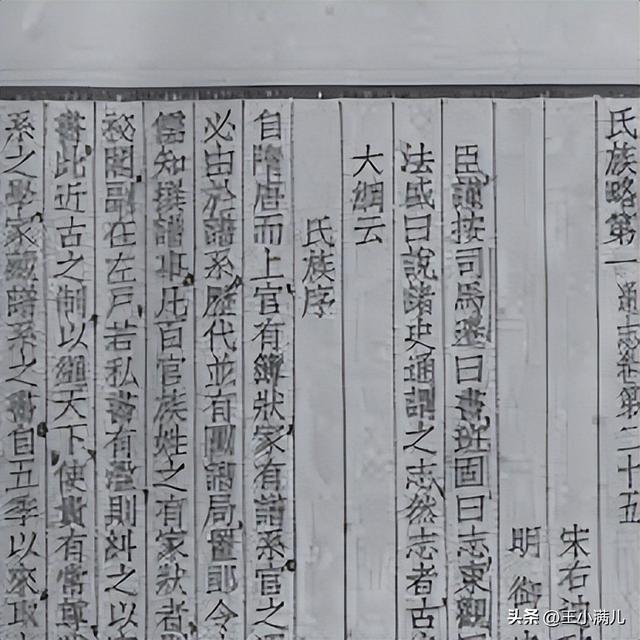 氏族略第一 通志卷第二十五
宋右
明 御
臣謹按司馬遷曰書班固曰志東觀
法盛曰說略史通謂之志然志者古
大綱云
氏族序
自隋唐而上官有簿狀家有譜系官之
必由於譜系歷代並有圖譜局置郎令
儒知撰譜事凡百官族姓之有家狀者
祕閣副在左戶若私書有濫則糾之以
書此近古之制以繩天下使貴有常尊
系之學家藏譜系之書自五季以來取
头条 @王小满儿